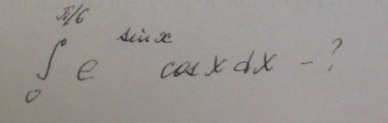 ∫₀^{π/6} e^{sin x} cos x dx - ?